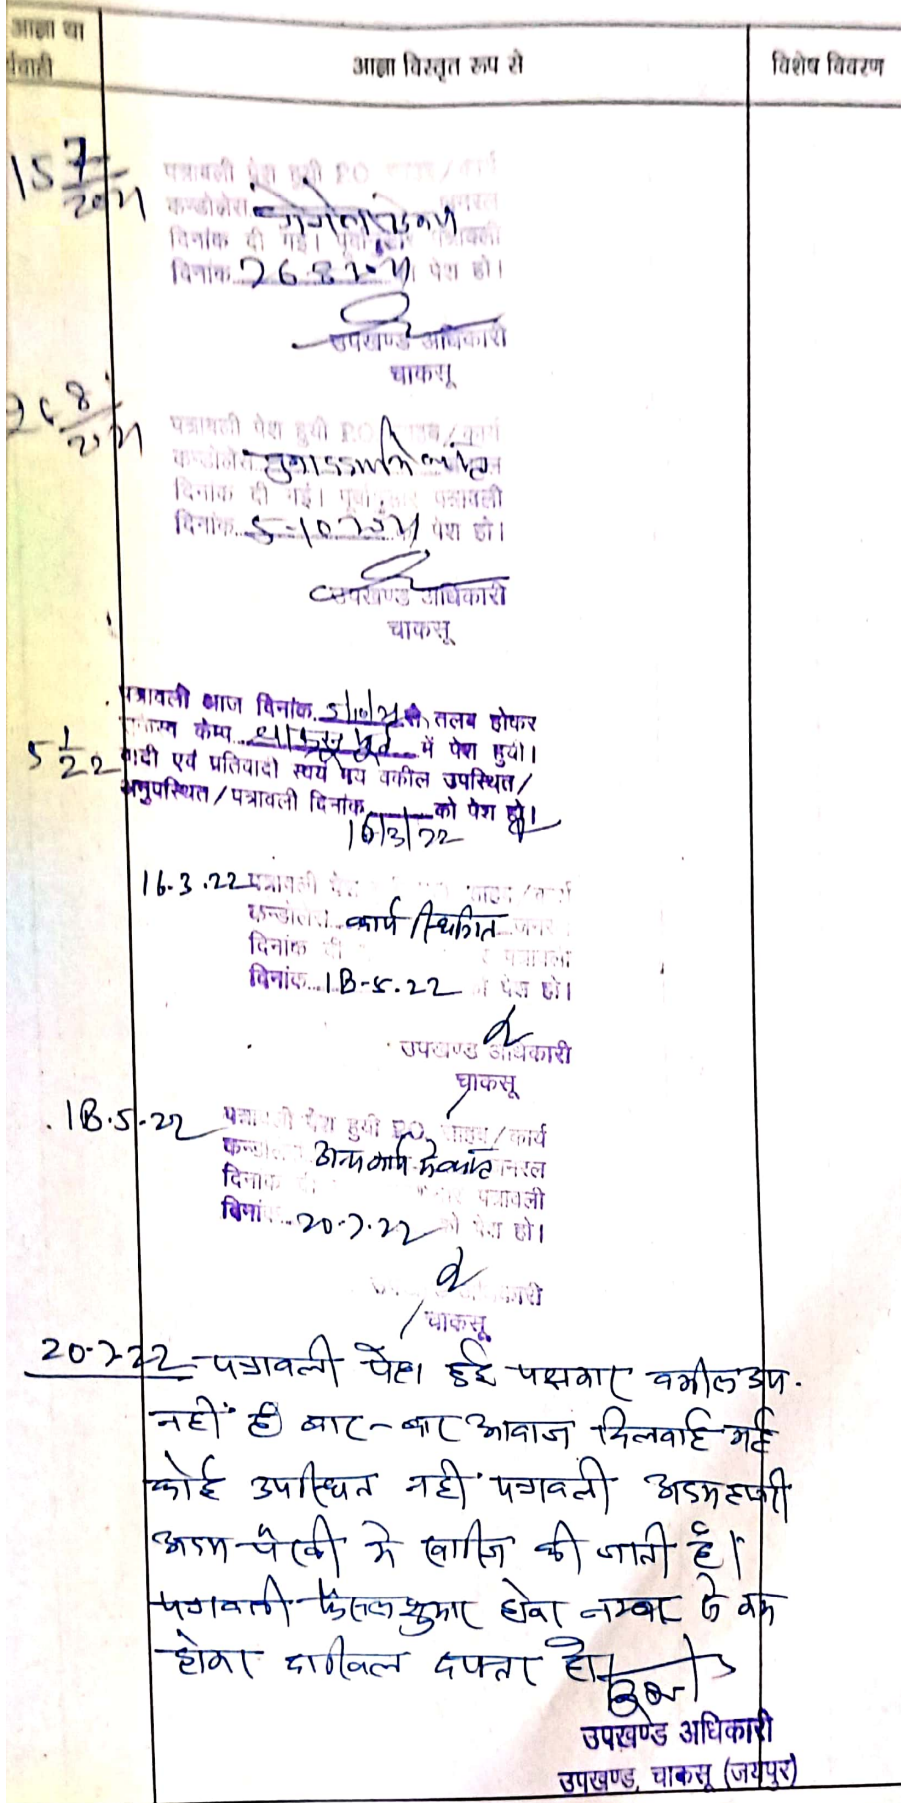 आज्ञा या
आज्ञा विस्तृत रूप से
विशेष विवरण
15 7/2021
पत्रावली पेश हुयी P.O. /कार्य
कन्डोलेंस
दिनांक दी गई। पत्रावली
दिनांक 26.8.2021 पेश हो।
उपखण्ड अधिकारी
चाकसू
26 8/2021
पत्रावली पेश हुयी P.O. /कार्य
कन्डोलेंस
दिनांक दी गई। पूर्वानुसार पत्रावली
दिनांक 5-10-2021 पेश हो।
उपखण्ड अधिकारी
चाकसू
पत्रावली आज दिनांक 5/10/21 से तलब होकर
केम्प चाकसू पूर्व में पेश हुयी।
5 1/22 वादी एवं प्रतिवादी स्वयं मय वकील उपस्थित/
अनुपस्थित/पत्रावली दिनांक को पेश हो।
16/3/22
16.3.22 पत्रावली पेश /कार्य
कन्डोलेंस कार्य स्थगित
दिनांक दी पत्रावली
दिनांक 18-5.22 पेश हो।
उपखण्ड अधिकारी
चाकसू
18.5.22 पत्रावली पेश हुयी P.O. /कार्य
अन्य कार्य मे व्यस्त जनरल
दिनांक पत्रावली
दिनां 20.7.22 को पेश हो।
चाकसू
20.7.22 पत्रावली पेश हुई पक्षकार वकील उप.
नहीं है बार-बार आवाज दिलवाई गई
कोई उपस्थित नही पत्रावली अदम हाजरी
अदम पैरवी मे खारिज की जाती है।
पत्रावली फैसल शुमार होकर नम्बर से कम
होकर दाखिल दफ्तर हो।
उपखण्ड अधिकारी
उपखण्ड, चाकसू (जयपुर)